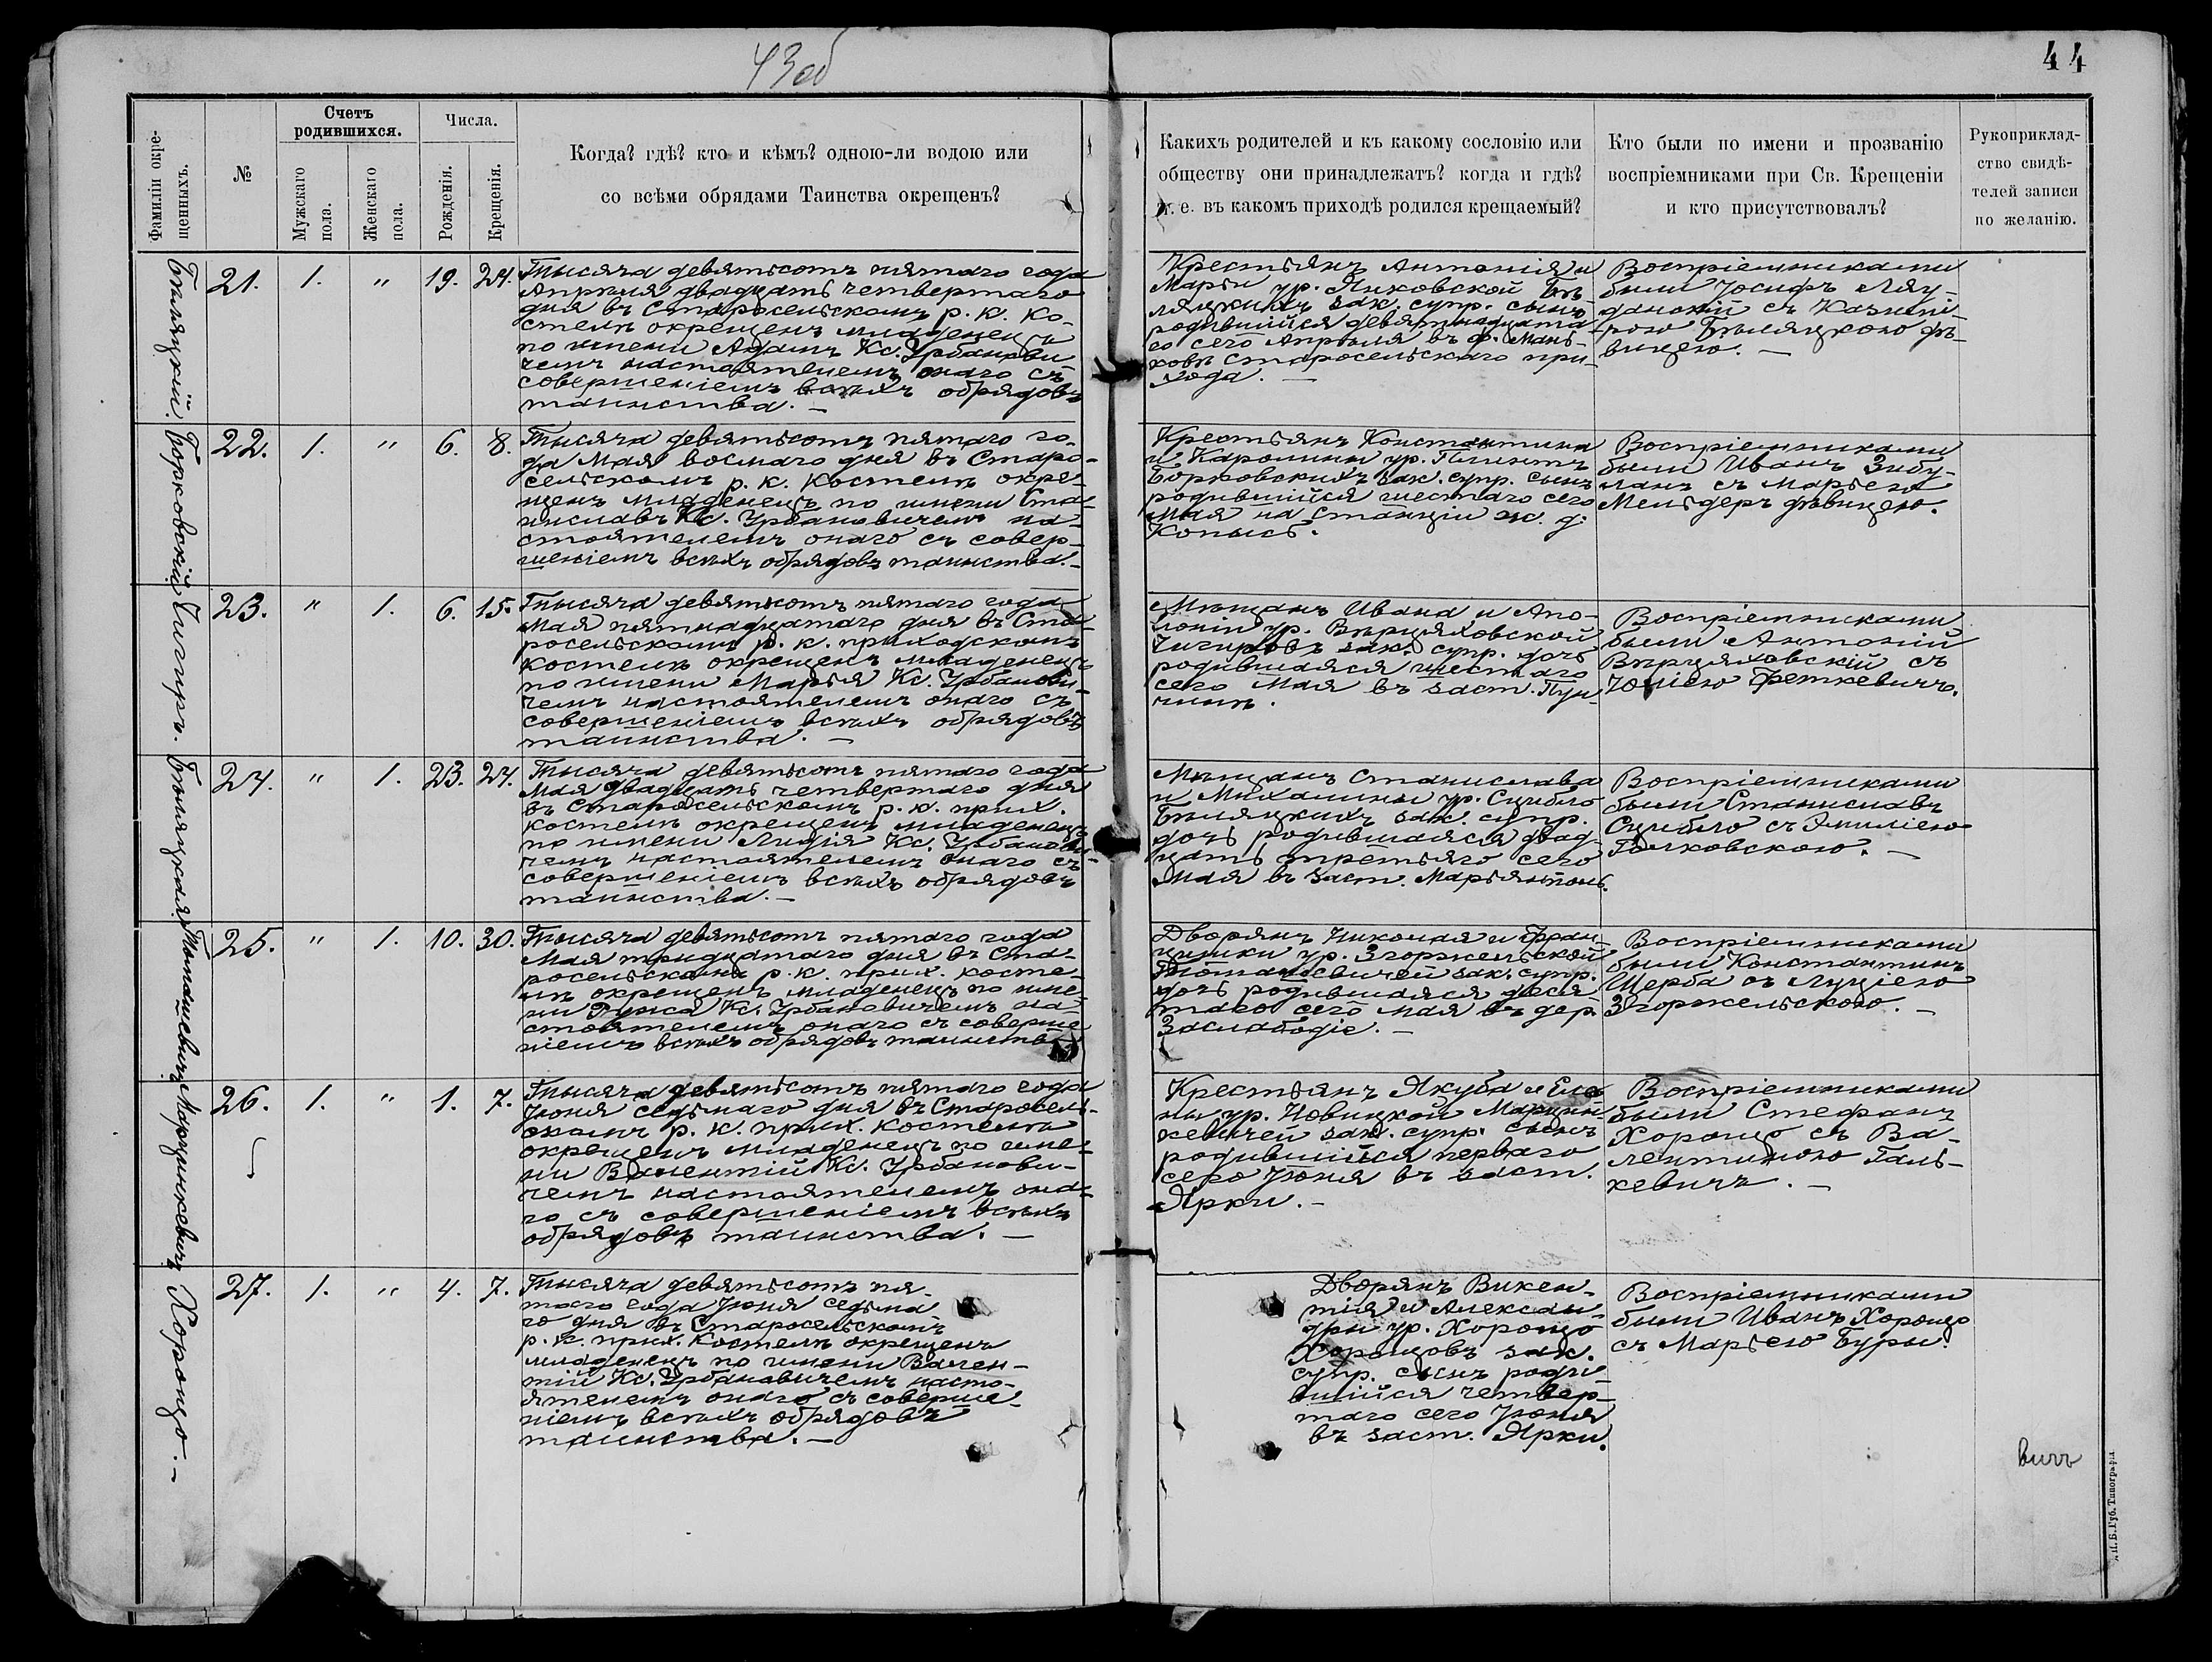 43об
44
Фамиліи окре-
щенныхъ.
№
Счетъ
родившихся.
Мужскаго
пола.
Женскаго
пола.
Числа.
Рожденія.
Крещенія.
Когда? гдѣ? кто и кѣмъ? одною-ли водою или
со всѣми обрядами Таинства окрещенъ?
Какихъ родителей и къ какому сословію или
обществу они принадлежатъ? когда и гдѣ?
т. е. въ какомъ приходѣ родился крещаемый?
Кто были по имени и прозванію
воспріемниками при Св. Крещеніи
и кто присутствовалъ?
Рукоприклад-
ство свидѣ-
телей записи
по желанію.
Бѣляцкій.
21. 1. " 19. 24.
Тысяча девятьсотъ пятаго года
Апрѣля двадцать четвертаго
дня въ Старосельскомъ р. к. ко-
стелѣ окрещенъ младенецъ
по имени Адамъ Кс. Урбанови
чемъ настоятелемъ онаго съ
совершеніемъ всѣхъ обрядовъ
таинства. —
Крестьянъ Антонія и
Марьи ур. Янковской Бѣ-
ляцкихъ зак. супр. сынъ
родившійся девятнадцата
го сего Апрѣля въ ф. Мань-
ковѣ Старосельскаго при-
хода. —
Воспріемниками
были Іосифъ Ляу-
данскій съ Казимі-
рою Бѣляцкою дѣ-
вицею. —
Борковскій
22. 1. " 6. 8.
Тысяча девятьсотъ пятаго го-
да Мая восмаго дня въ Старо-
сельскомъ р. к. костелѣ окре-
щенъ младенецъ по имени Ста-
ниславъ Кс. Урбановичемъ на-
стоятелемъ онаго съ совер-
шеніемъ всѣхъ обрядовъ таинства. —
Крестьянъ Константина
и Каролины ур. Плинтъ
Борковскихъ зак. супр. сынъ
родившійся шестаго сего
Мая на станціи ж. д.
Копысь.
Воспріемниками
были Иванъ Зибу-
ланъ съ Марьею
Мельдеръ дѣвицею.
Чигиръ.
23. " 1. 6. 15.
Тысяча девятьсотъ пятаго года
Мая пятнадцатаго дня въ Ста-
росельскомъ р. к. приходскомъ
костелѣ окрещенъ младенецъ
по имени Марья Кс. Урбанови-
чемъ настоятелемъ онаго съ
совершеніемъ всѣхъ обрядовъ
таинства. —
Мѣщанъ Ивана и Апо-
лоніи ур. Вѣрцяховской
Чигировъ зак. супр. дочь
родившаяся шестаго
сего Мая въ заст. Пун-
Воспріемниками
были Антоній
Вѣрцяховскій съ
Юліею Феткевичъ.
Бѣляцкая
24. " 1. 23. 24.
Тысяча девятьсотъ пятаго года
Мая двадцать четвертаго дня
въ Старосельскомъ р. к. прих.
костелѣ окрещенъ младенецъ
по имени Лидія Кс. Урбанови
чемъ настоятелемъ онаго съ
совершеніемъ всѣхъ обрядовъ
таинства. —
Мѣщанъ Станислава
и Михалины ур. Сцибло
Бѣляцкихъ зак. супр.
дочь родившаяся двад-
цать третьяго сего
Мая въ заст. Марьянполь.
Воспріемниками
были Станиславъ
Сцибло съ Эмиліею
Голковскою. —
Томашевичъ
25. " 1. 10. 30.
Тысяча девятьсотъ пятаго года
Мая тридцатаго дня въ Ста-
росельскомъ р. к. прих. косте-
лѣ окрещенъ младенецъ по име-
ни Кс. Урбановичемъ на-
стоятелемъ онаго съ соверше
ніемъ всѣхъ обрядовъ таинства
Дворянъ Николая и Фран-
цишки ур. Згоржельской
Томашевичей зак. супр.
дочь родившаяся деся-
таго сего мая въ дер.
Заслабодіе. —
Воспріемниками
были Константинъ
Щерба съ Луціею
Згоржельскою. —
Марцинкевичъ
26. 1. " 1. 7.
Тысяча девятьсотъ пятаго года
Іюня седьмаго дня въ Старосель-
скомъ р. к. прих. костелѣ
окрещенъ младенецъ по име-
ни Валентій Кс. Урбанови-
чемъ настоятелемъ она-
го съ совершеніемъ всѣхъ
обрядовъ таинства. —
Крестьянъ Якуба и Еле
ны ур. Новицкой Марцин-
кевичей зак. супр. сынъ
родившійся перваго
сего Іюня въ заст.
Ярки. —
Воспріемниками
были Стефанъ
Хорощо съ Ва-
лентиною Галь-
кевичъ. —
Хорощо. —
27. 1. " 4. 7.
Тысяча девятьсотъ пя-
таго года Іюня седьма
го дня въ Старосельскомъ
р. к. прих. костелѣ окрещенъ
младенецъ по имени Вален-
тій Кс. Урбановичемъ насто-
ятелемъ онаго съ соверше-
ніемъ всѣхъ обрядовъ
таинства. —
Дворянъ Викен-
тія и Алексан-
дры ур. Хорощо
Хорощовъ зак.
супр. сынъ роди-
вшійся четвер-
таго сего Іюня
въ заст. Ярки.
Воспріемниками
были Иванъ Хорощо
съ Марьею Буры.
вичъ
Губ. Типографія